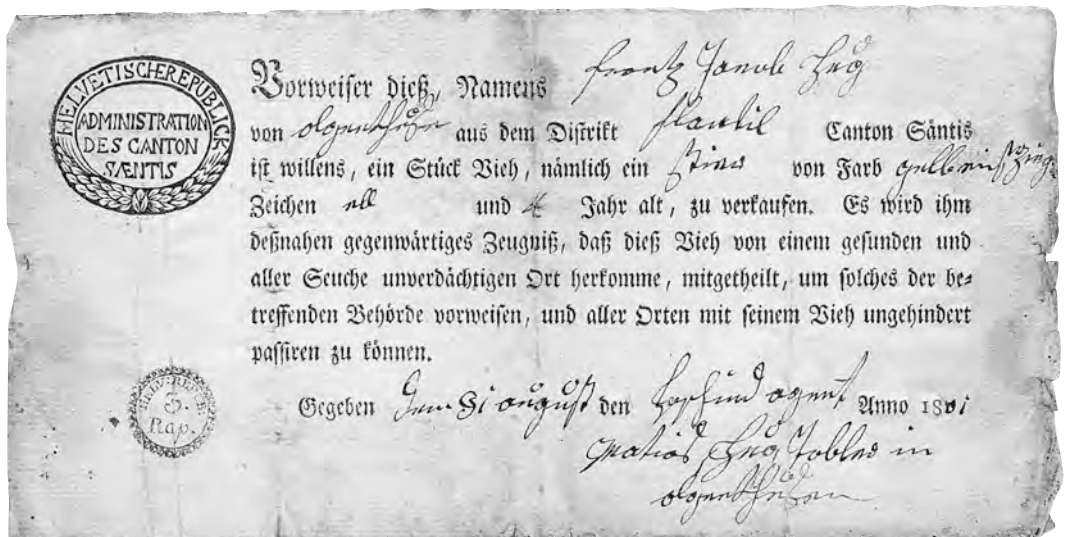 HELVETISCHE REPUBLICK
ADMINISTRATION
DES CANTON
SÆNTIS
Vorweiser dieß, Namens Frantz Jacob Hug
von aus dem Distrikt Flawil Canton Säntis
ist willens, ein Stück Vieh, nämlich ein Stier von Farb
Zeichen und 4 Jahr alt, zu verkaufen. Es wird ihm
deßnahen gegenwärtiges Zeugniß, daß dieß Vieh von einem gesunden und
aller Seuche unverdächtigen Ort herkomme, mitgetheilt, um solches der be=
treffenden Behörde vorweisen, und aller Orten mit seinem Vieh ungehindert
passiren zu können.
HELV: REPUB:
5.
Rap.
Gegeben 31 august den agent Anno 1801
Hug Tobler in